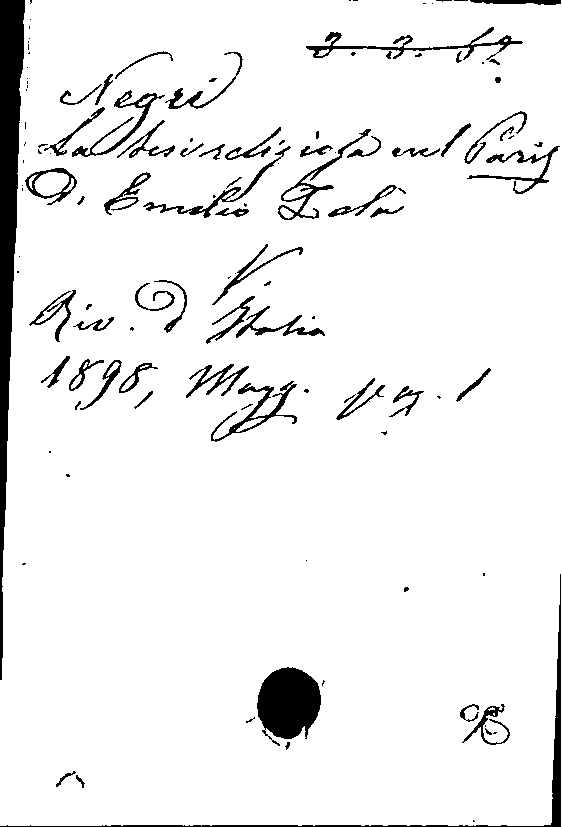 3. 3. 62
Negri
La nel Paris
d. Emilio Zola
V.
Riv. d Italia
1898, Magg. pag. 1